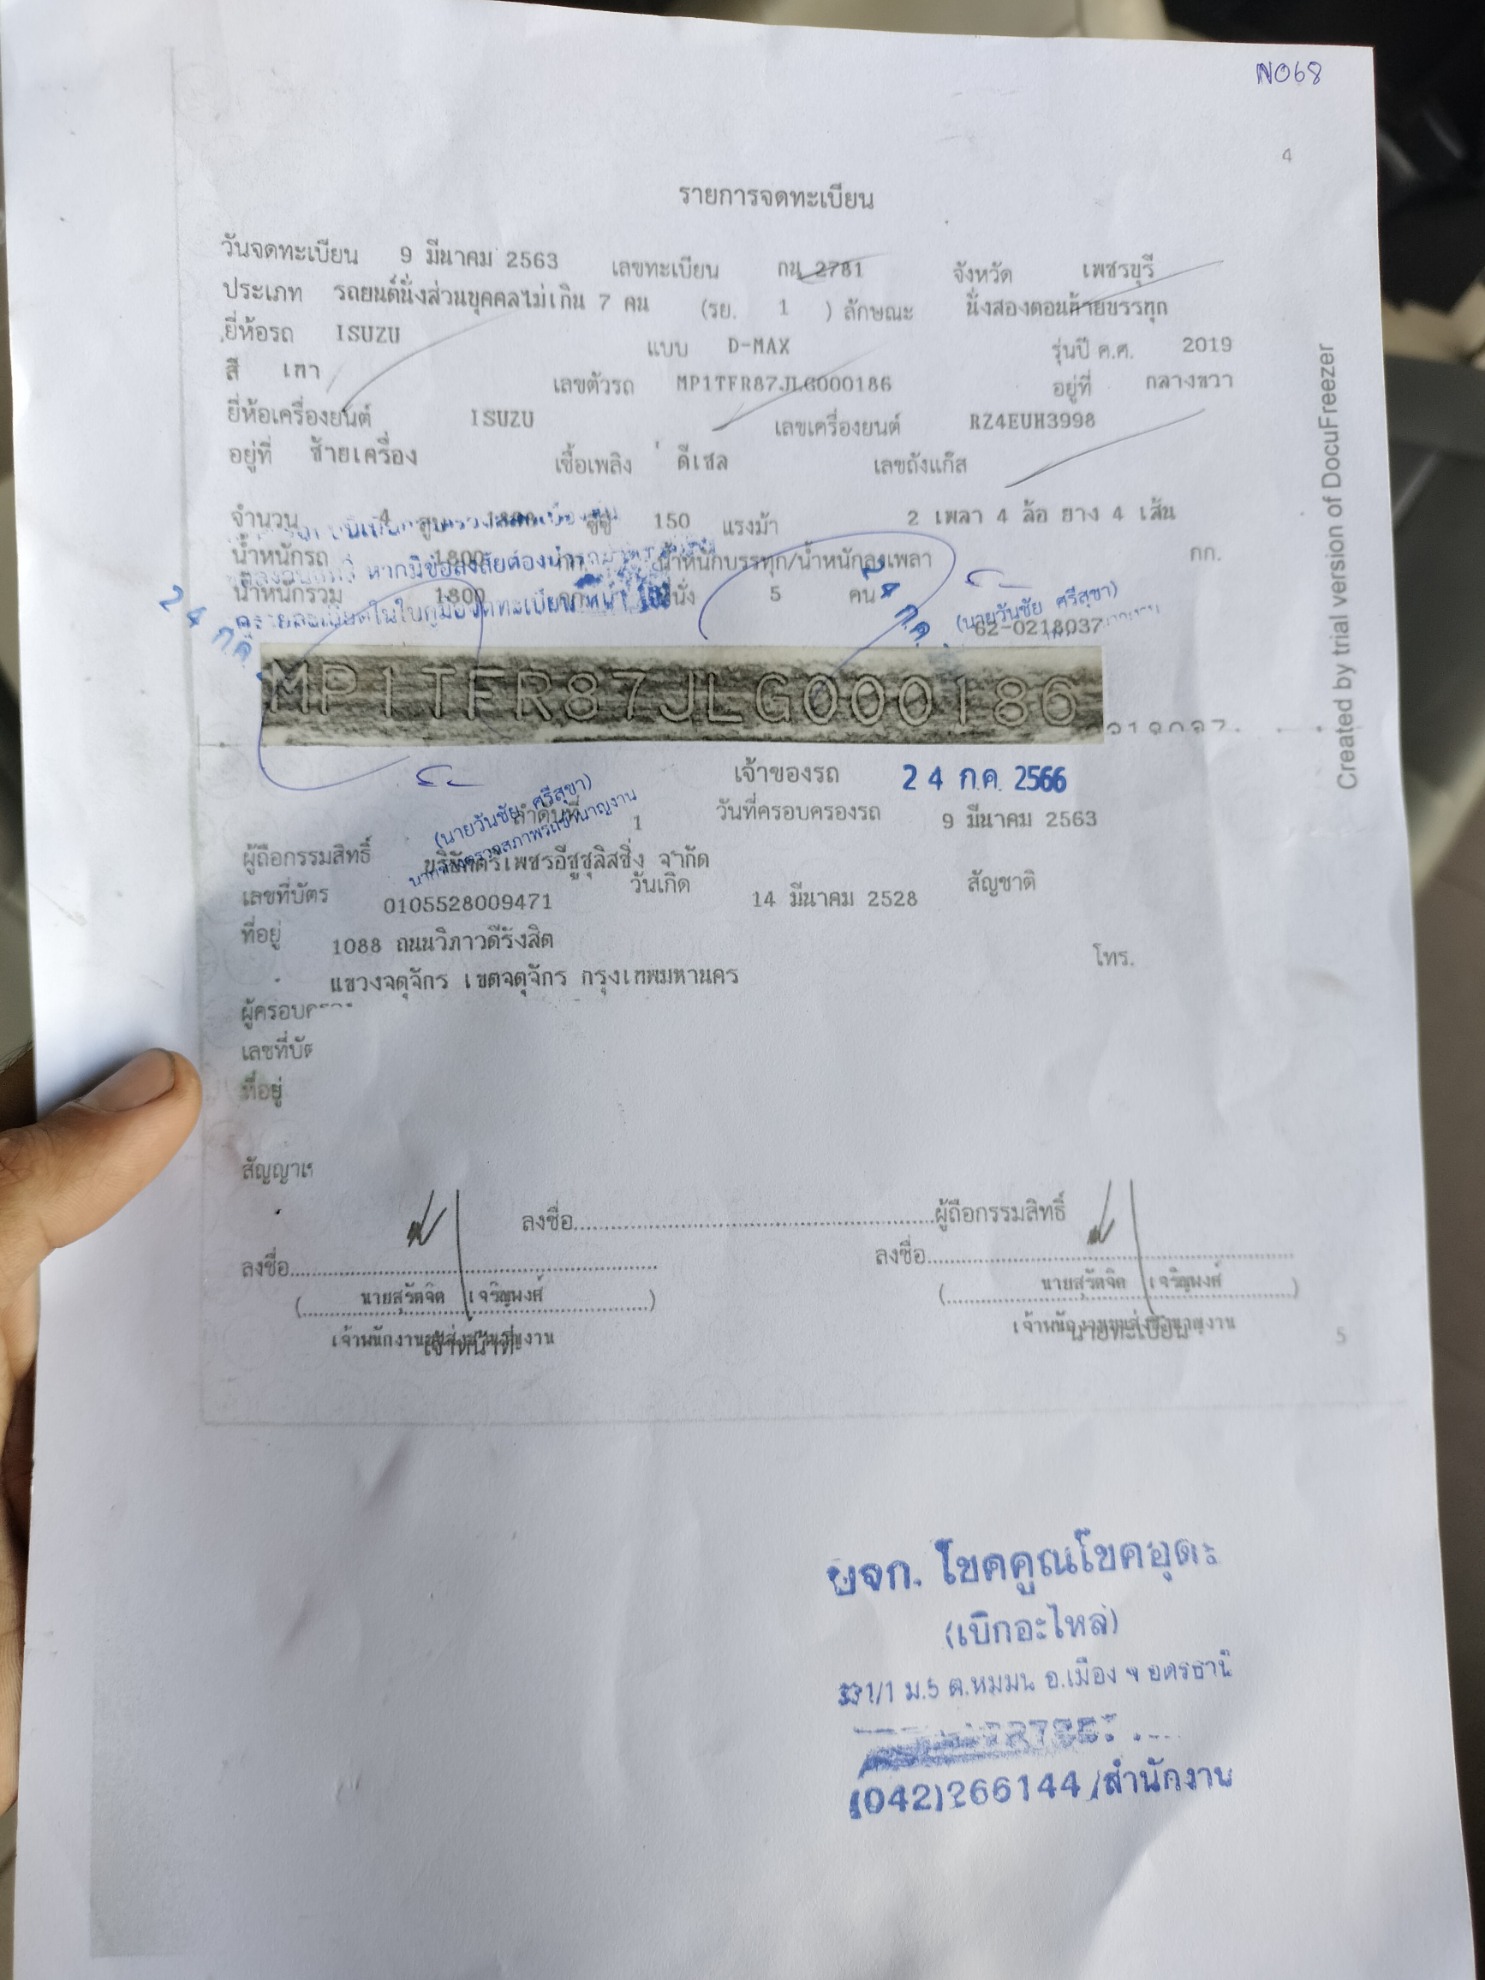 N068
4
รายการจดทะเบียน
วันจดทะเบียน 9 มีนาคม 2563 เลขทะเบียน กน 2781 จังหวัด เพชรบุรี
ประเภท รถยนต์นั่งส่วนบุคคลไม่เกิน 7 คน (รย. 1 ) ลักษณะ นั่งสองตอนท้ายบรรทุก
ยี่ห้อรถ ISUZU แบบ D-MAX รุ่นปี ค.ศ. 2019
สี เทา เลขตัวรถ MP1TFR87JLG000186 อยู่ที่ กลางขวา
ยี่ห้อเครื่องยนต์ ISUZU เลขเครื่องยนต์ RZ4EUH3998
อยู่ที่ ซ้ายเครื่อง เชื้อเพลิง ดีเซล เลขถังแก๊ส
จำนวน 4 สูบ ซีซี 150 แรงม้า 2 เพลา 4 ล้อ ยาง 4 เส้น
น้ำหนักรถ 1800 น้ำหนักบรรทุก/น้ำหนักลงเพลา กก.
หากมีข้อสงสัยต้องนำ
น้ำหนักรวม 1800 นั่ง 5 คน
24 ก.ค.
24 ก.ค.
(นายวันชัย ศรีสุขา)
62-0218037
MP1TFR87JLG000186
เจ้าของรถ 24 ก.ค. 2566
ลำดับที่ 1 วันที่ครอบครองรถ 9 มีนาคม 2563
(นายวันชัย ศรีสุขา)
ผู้ถือกรรมสิทธิ์ บริษัทตรีเพชรอีซูซุลิสซิ่ง จำกัด
เลขที่บัตร 0105528009471 วันเกิด 14 มีนาคม 2528 สัญชาติ
ที่อยู่ 1088 ถนนวิภาวดีรังสิต โทร.
แขวงจตุจักร เขตจตุจักร กรุงเทพมหานคร
เลขที่บัต
ที่อยู่
ลงชื่อ ผู้ถือกรรมสิทธิ์
ลงชื่อ ลงชื่อ
( นายสุรัตจิต เจริญพงศ์ ) ( นายสุรัตจิต เจริญพงศ์ )
เจ้าหน้าที่ นายทะเบียน
5
Created by trial version of DocuFreezer
หจก. โชคคูณโชคอุดร
(เบิกอะไหล่)
331/1 ม.5 ต.หมูม่น อ.เมือง จ อุดรธานี
(042)266144/สำนักงาน